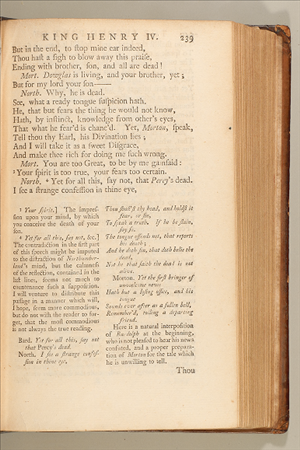 KING HENRY IV. 239
But in the end, to stop mine ear indeed,
Thou hast a sigh to blow away this praise,
Ending with brother, son, and all are dead!
Mort. Douglas is living, and your brother, yet;
But for my lord your son——
North. Why, he is dead.
See, what a ready tongue suspicion hath.
He, that but fears the thing he would not know,
Hath, by instinct, knowledge from other's eyes,
That what he fear'd is chanc'd. Yet, Morton, speak,
Tell thou thy Earl, his Divination lies;
And I will take it as a sweet Disgrace,
And make thee rich for doing me such wrong.
Mort. You are too Great, to be by me gainsaid:
Your spirit is too true, your fears too certain.
North. Yet for all this, say not, that Percy's dead.
I see a strange confession in thine eye,
Your spirit.] The impres-
sion upon your mind, by which
you conceive the death of your
son.
Yet for all this, say not, &c.]
The contradiction in the first part
of this speech might be imputed
to the distraction of Northumber-
land's mind, but the calmness
of the reflection, contained in the
last lines, seems not much to
countenance such a supposition.
I will venture to distribute this
passage in a manner which will,
I hope, seem more commodious,
but do not wish the reader to for-
get, that the most commodious
is not always the true reading.
Bard. Yet for all this, say not
that Percy's dead.
North. I see a strange confes-
sion in thine eye,
Thou shak'st thy head, and hold'st it
fear, or sin,
To speak a truth. If he be slain,
say so.
The tongue offends not, that reports
his death;
And he doth sin, that doth belie the
dead,
Not he that saith the dead is not
alive.
Morton. Yet the first bringer of
unwelcome news
Hath but a losing office, and his
tongue
Sounds ever after as a sullen bell,
Remember'd, tolling a departing
friend.
Here is a natural interposition
of Bardolph at the beginning,
who is not pleased to hear his news
confuted, and a proper prepara-
tion of Morton for the tale which
he is unwilling to tell.
Thou